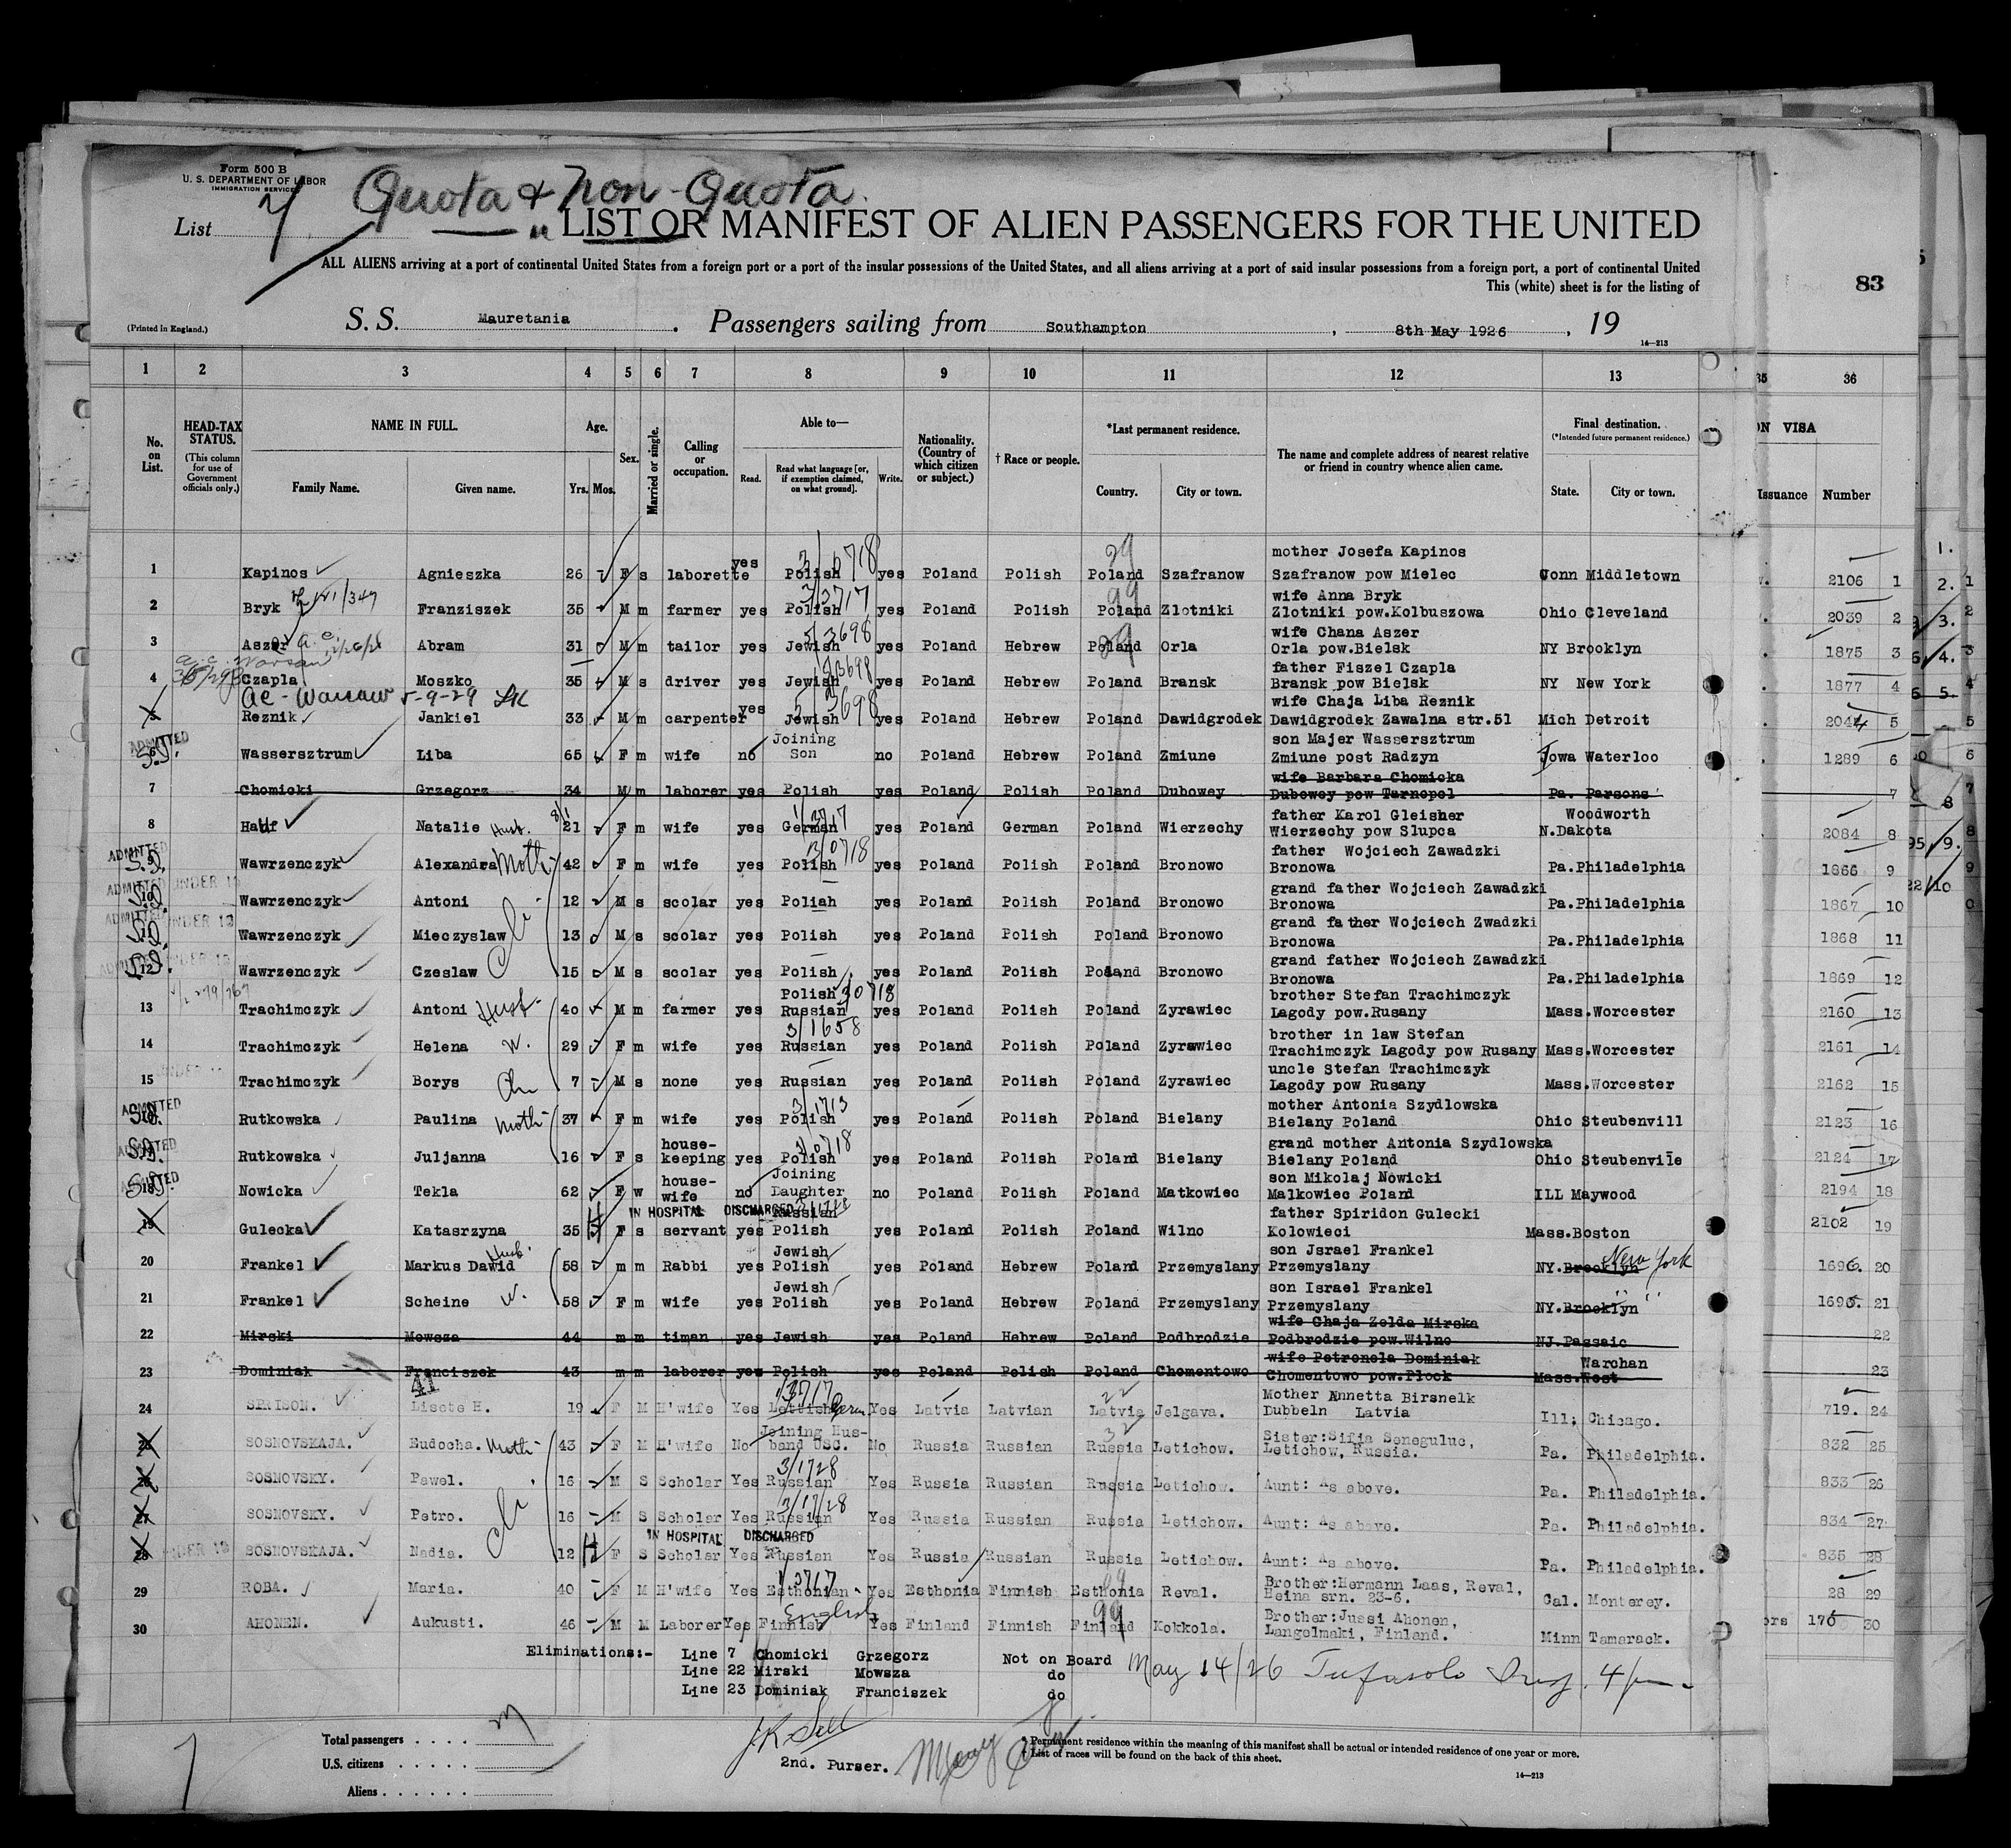 Form 500 B
U. S. DEPARTMENT OF LABOR
IMMIGRATION SERVICE
Quota & Non-Quota
List
LIST OR MANIFEST OF ALIEN PASSENGERS FOR THE UNITED
ALL ALIENS arriving at a port of continental United States from a foreign port or a port of the insular possessions of the United States, and all aliens arriving at a port of said insular possessions from a foreign port, a port of continental United
This (white) sheet is for the listing of
83
(Printed in England.) S. S. Mauretania . Passengers sailing from Southampton , 8th May 1926 , 19
14—213
1 2 3 4 5 6 7 8 9 10 11 12 13 35 36
No. on List. HEAD-TAX STATUS. (This column for use of Government officials only.) NAME IN FULL. Family Name. Given name. Age. Yrs. Mos. Sex. Married or single. Calling or occupation. Able to— Read. Read what language [or, if exemption claimed, on what ground]. Write. Nationality. (Country of which citizen or subject.) † Race or people. *Last permanent residence. Country. City or town. The name and complete address of nearest relative or friend in country whence alien came. Final destination. (*Intended future permanent residence.) State. City or town. VISA Issuance Number
1 Kapinos Agnieszka 26 F s laborette yes Polish yes Poland Polish Poland Szafranow mother Josefa Kapinos Szafranow pow Mielec Conn Middletown 2106 1
2 Bryk Franziszek 35 M m farmer yes Polish yes Poland Polish Poland Zlotniki wife Anna Bryk Zlotniki pow.Kolbuszowa Ohio Cleveland 2039 2
3 Aszer Abram 31 M m tailor yes Jewish yes Poland Hebrew Poland Orla wife Chana Aszer Orla pow.Bielsk NY Brooklyn 1875 3
4 Czapla Moszko 35 M s driver yes Jewish yes Poland Hebrew Poland Bransk father Fiszel Czapla Bransk pow Bielsk NY New York 1877 4
ac - Warsaw 5-9-29 LK
5 Reznik Jankiel 33 M m carpenter yes Jewish yes Poland Hebrew Poland Dawidgrodek wife Chaja Liba Reznik Dawidgrodek Zawalna str.51 Mich Detroit 2044 5
ADMITTED
6 Wassersztrum Liba 65 F m wife no Joining Son no Poland Hebrew Poland Zmiune son Majer Wassersztrum Zmiune post Radzyn Iowa Waterloo 1289 6
7 Chomicki Grzegorz 34 M m laborer yes Polish yes Poland Polish Poland Dubowey wife Barbara Chomicka Dubowey pow Tarnopol Pa. Parsons 7
8 Natalie Husb. 21 F m wife yes German yes Poland German Poland Wierzechy father Karol Gleisher Wierzechy pow Slupca Woodworth N.Dakota 2084 8
ADMITTED
9 Wawrzenczyk Alexandra Moth 42 F m wife yes Polish yes Poland Polish Poland Bronowo father Wojciech Zawadzki Bronowa Pa.Philadelphia 1866 9
10 Wawrzenczyk Antoni 12 M s scolar yes Polish yes Poland Polish Poland Bronowo grand father Wojciech Zawadzki Bronowa Pa.Philadelphia 1867 10
11 Wawrzenczyk Mieczyslaw 13 M s scolar yes Polish yes Poland Polish Poland Bronowo grand father Wojciech Zwadzki Bronowa Pa.Philadelphia 1868 11
12 Wawrzenczyk Czeslaw 15 M s scolar yes Polish yes Poland Polish Poland Bronowo grand father Wojciech Zawadzki Bronowa Pa.Philadelphia 1869 12
13 Trachimczyk Antoni Husb 40 M m farmer yes Polish Russian yes Poland Polish Poland Zyrawiec brother Stefan Trachimczyk Lagody pow.Rusany Mass.Worcester 2160 13
14 Trachimczyk Helena W. 29 F m wife yes Russian yes Poland Polish Poland Zyrawiec brother in law Stefan Trachimczyk Lagody pow Rusany Mass.Worcester 2161 14
15 Trachimczyk Borys Ch 7 M s none yes Russian yes Poland Polish Poland Zyrawiec uncle Stefan Trachimczyk Lagody pow Rusany Mass.Worcester 2162 15
ADMITTED
16 Rutkowska Paulina Moth 37 F m wife yes Polish yes Poland Polish Poland Bielany mother Antonia Szydlowska Bielany Poland Ohio Steubenvill 2123 16
17 Rutkowska Juljanna 16 F s house-keeping yes Polish yes Poland Polish Poland Bielany grand mother Antonia Szydlowska Bielany Poland Ohio Steubenvile 2124 17
18 Nowicka Tekla 62 F w house-wife no Joining Daughter no Poland Polish Poland Matkowiec son Mikolaj Nowicki Malkowiec Poland ILL Maywood 2194 18
IN HOSPITAL DISCHARGED
19 Gulecka Katasrzyna 35 F s servant yes Russian Polish yes Poland Polish Poland Wilno father Spiridon Gulecki Kolowieci Mass.Boston 2102 19
20 Frankel Markus Dawid Husb. 58 m m Rabbi yes Jewish Polish yes Poland Hebrew Poland Przemyslany son Jsrael Frankel Przemyslany NY.Brooklyn New York 1696 20
21 Frankel Scheine W. 58 F m wife yes Jewish Polish yes Poland Hebrew Poland Przemyslany son Israel Frankel Przemyslany NY.Brooklyn 1695 21
22 Mirski Mowsza 44 m m timan yes Jewish yes Poland Hebrew Poland Podbrodzie wife Chaja Zelda Mirska Podbrodzie pow.Wilno NJ.Passaic 22
23 Dominiak Franciszek 43 m m laborer yes Polish yes Poland Polish Poland Chomentowo wife Petronela Dominiak Chomentowo pow.Plock Warehan Mass.West 23
24 Lisete H. 19 F M H'wife Yes Lettish Germ Yes Latvia Latvian Latvia Jelgava. Mother Annetta Birsnelk Dubbeln Latvia Ill; Chicago. 719. 24
25 SOSNOVSKAJA. Eudocha. Moth 43 F M H'wife No Joining Husband USC. No Russia Russian Russia Letichow. Sister:Sifia Seneguluc, Letichow, Russia. Pa. Philadelphia. 832 25
26 SOSNOVSKY. Pawel. 16 M S Scholar Yes Russian Yes Russia Russian Russia Letichow. Aunt: As above. Pa. Philadelphia. 833 26
27 SOSNOVSKY. Petro. 16 M S Scholar Yes Russian Yes Russia Russian Russia Letichow. Aunt: As above. Pa. Philadelphia. 834 27
IN HOSPITAL DISCHARGED
28 SOSNOVSKAJA. Nadia. 12 F S Scholar Yes Russian Yes Russia Russian Russia Letichow. Aunt: As above. Pa. Philadelphia. 835 28
29 ROBA. Maria. 40 F M H'wife Yes Esthonian Yes Esthonia Finnish Esthonia Reval. Brother:Hermann Laas, Reval, Heina srn. 23-6. Cal. Monterey. 28 29
30 AHONEN. Aukusti. 46 M M Laborer Yes Finnish English Yes Finland Finnish Finland Kokkola. Brother:Jussi Ahonen, Langolmaki, Finland. Minn Tamarack. 176 30
Eliminations:- Line 7 Chomicki Grzegorz Not on Board May 14/26
Line 22 Mirski Mowsza do
Line 23 Dominiak Franciszek do
Total passengers
U.S. citizens
Aliens
2nd. Purser.
* Permanent residence within the meaning of this manifest shall be actual or intended residence of one year or more.
† List of races will be found on the back of this sheet.
14—213